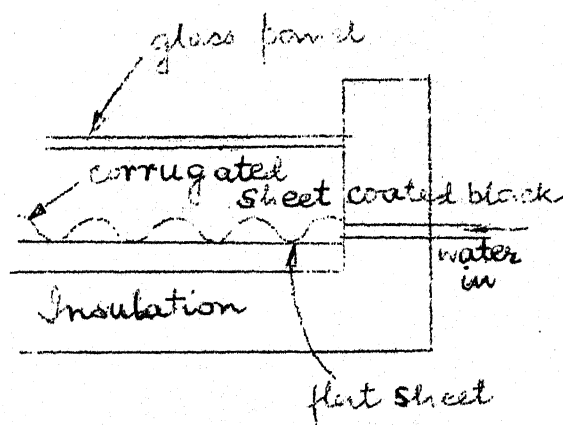 glass panel
corrugated
sheet coated black
water
in
Insulation
flat sheet